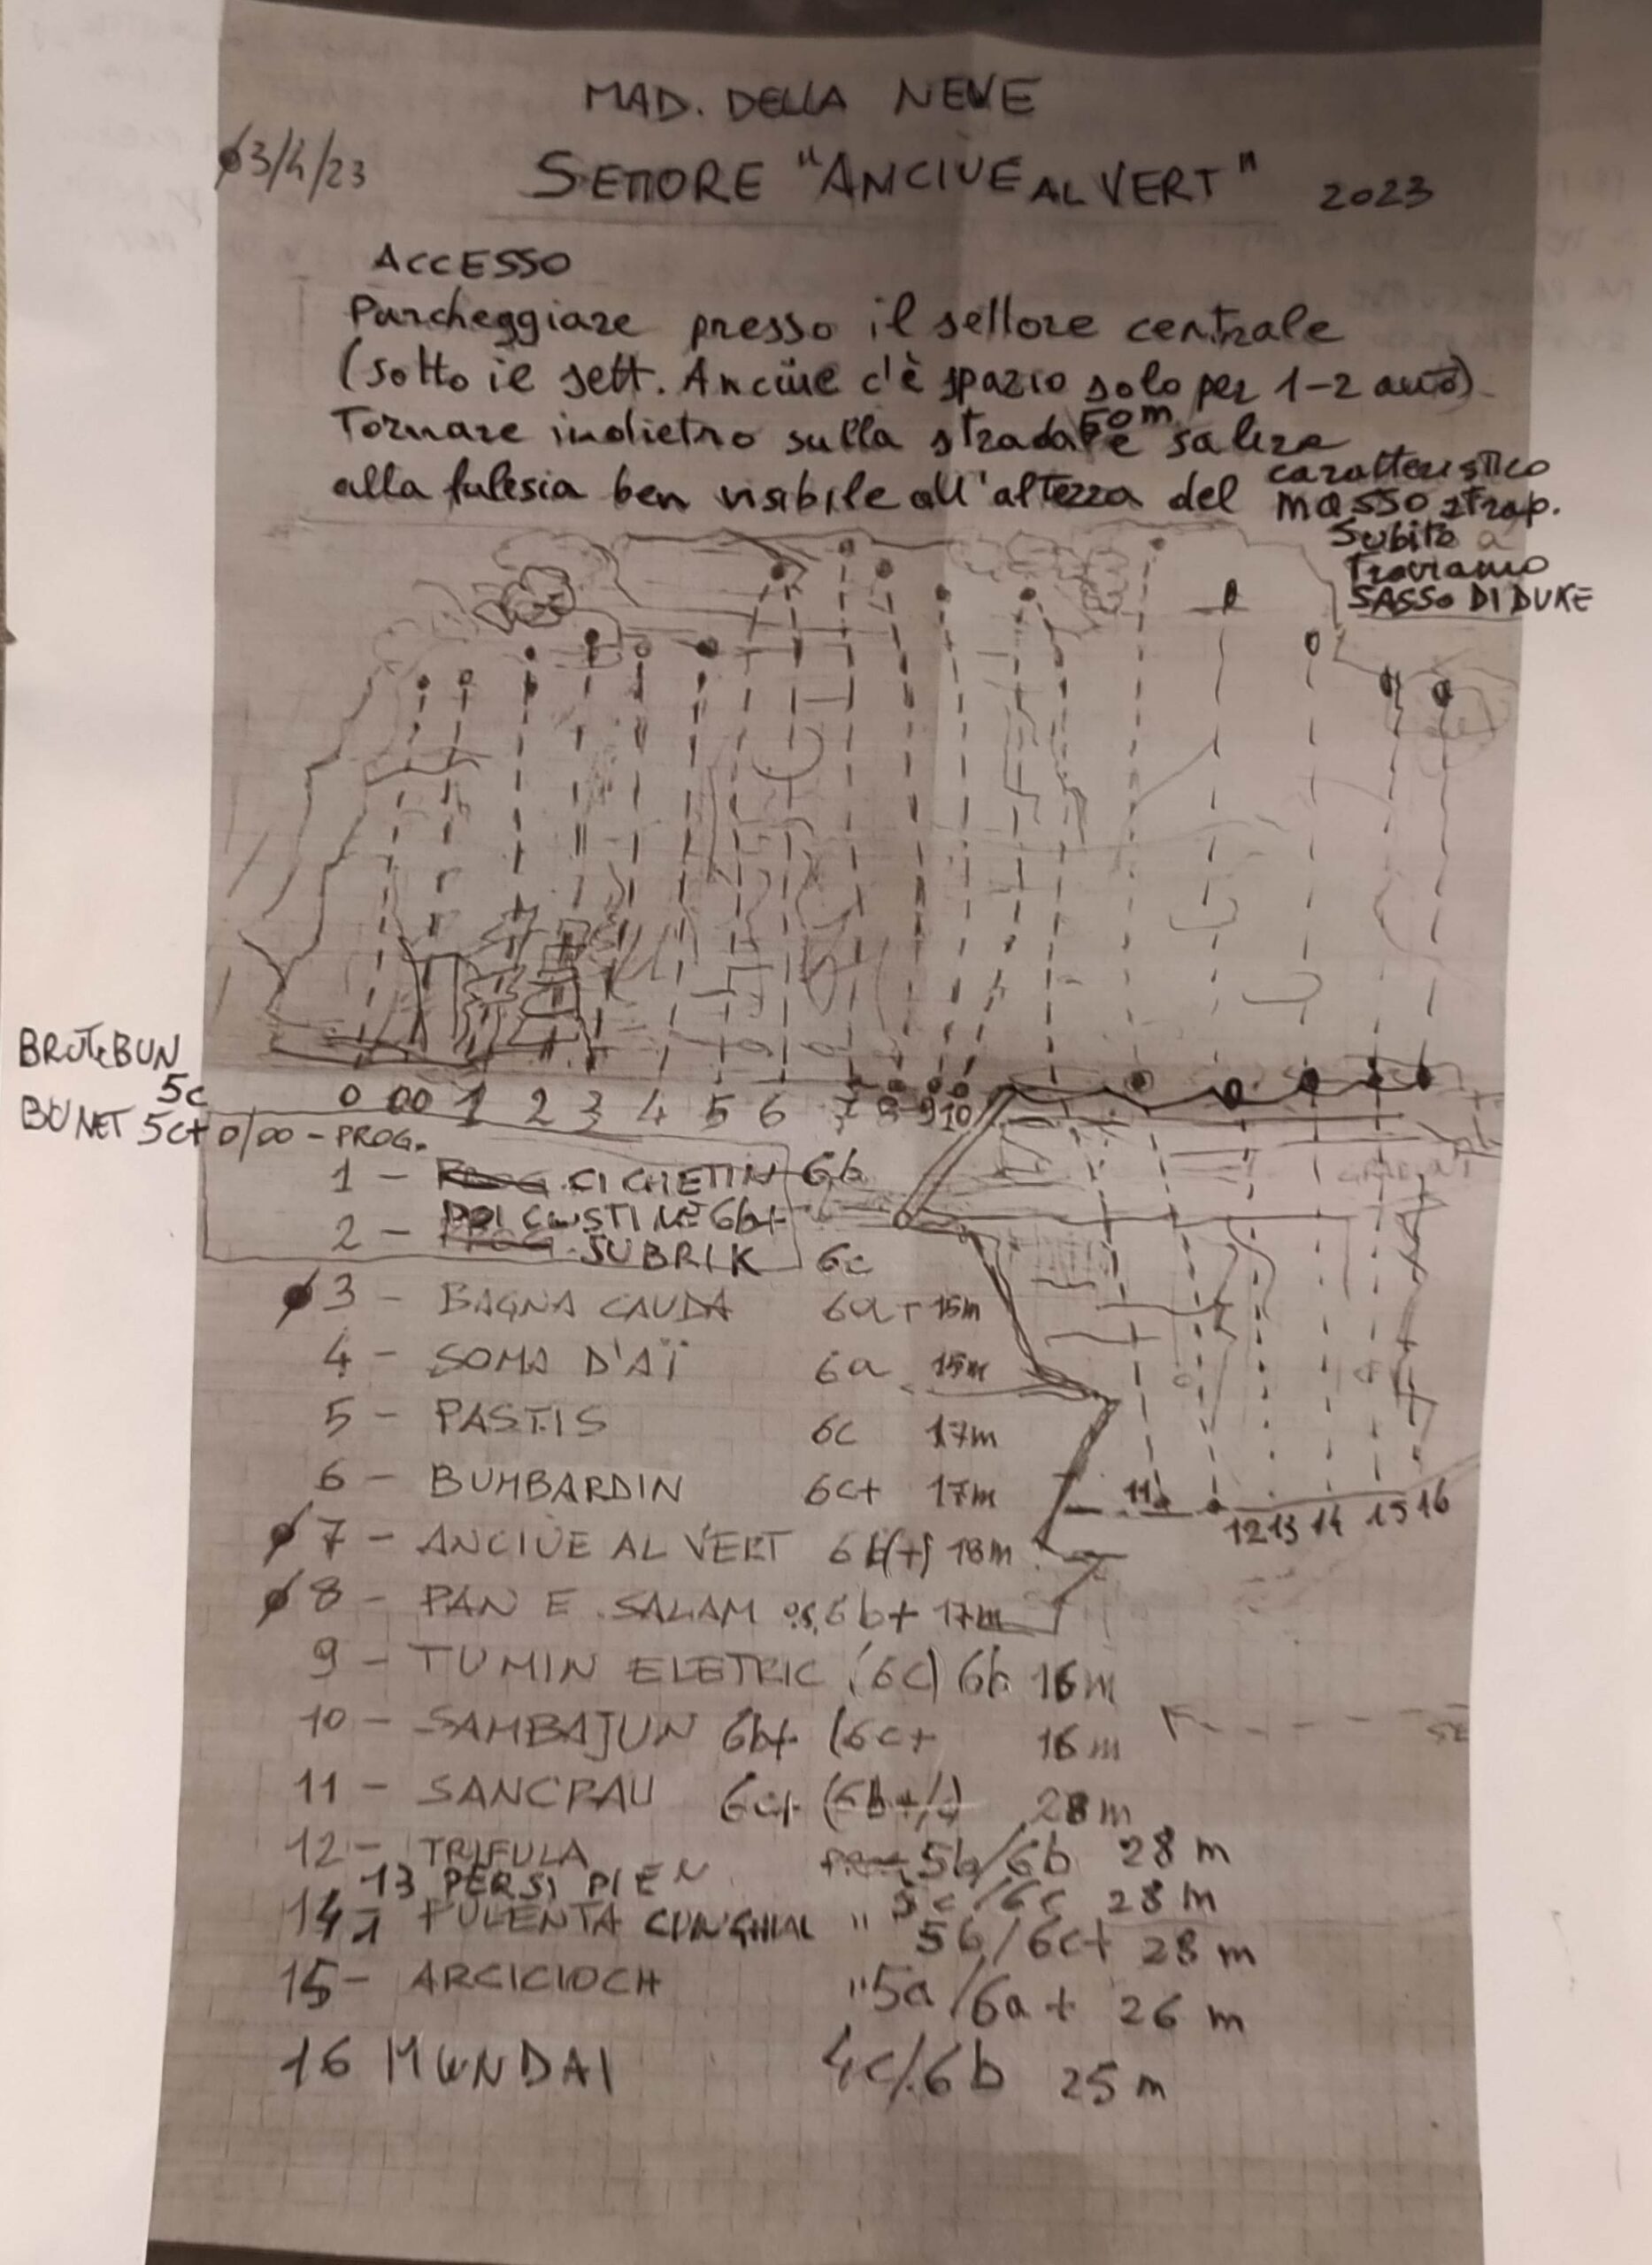 MAD. DELLA NEVE
03/4/23
SETTORE "ANCIÜE AL VERT" 2023
ACCESSO
Parcheggiare presso il settore centrale
(sotto il sett. Anciüe c'è spazio solo per 1-2 auto)
Tornare indietro sulla strada 50m e salire
alla falesia ben visibile all'altezza del caratteristico
masso strap.
Subito a
Troviamo
SASSO DI DUKE
BRUT E BUN
5c
BUNET 5c+
0 00 1 2 3 4 5 6 7 8 9 10
0/00 - PROG.
1 - CICHETIN 6b
2 - SUBRIK 6c
3 - BAGNA CAUDA 6a+ 15m
4 - SOMA D'AÏ 6a 15m
5 - PASTIS 6c 17m
6 - BUMBARDIN 6c+ 17m
11 12 13 14 15 16
7 - ANCIÜE AL VERT 6b(+) 18m
8 - PAN E SALAM 6b+ 17m
9 - TUMIN ELETRIC (6c) 6b 16m
10 - SAMBAJUN 6b+ (6c+ 16m
11 - SANCRAU 6c+ (6b+/c) 28m
12 - TRIFULA 5b/6b 28m
13 PERSI PIEN 5c/6c 28m
14 - PULENTA CUNGHIAL " 5b/6c+ 28m
15 - ARCICIOCH " 5a/6a+ 26m
16 MUNDAI 4c/6b 25m